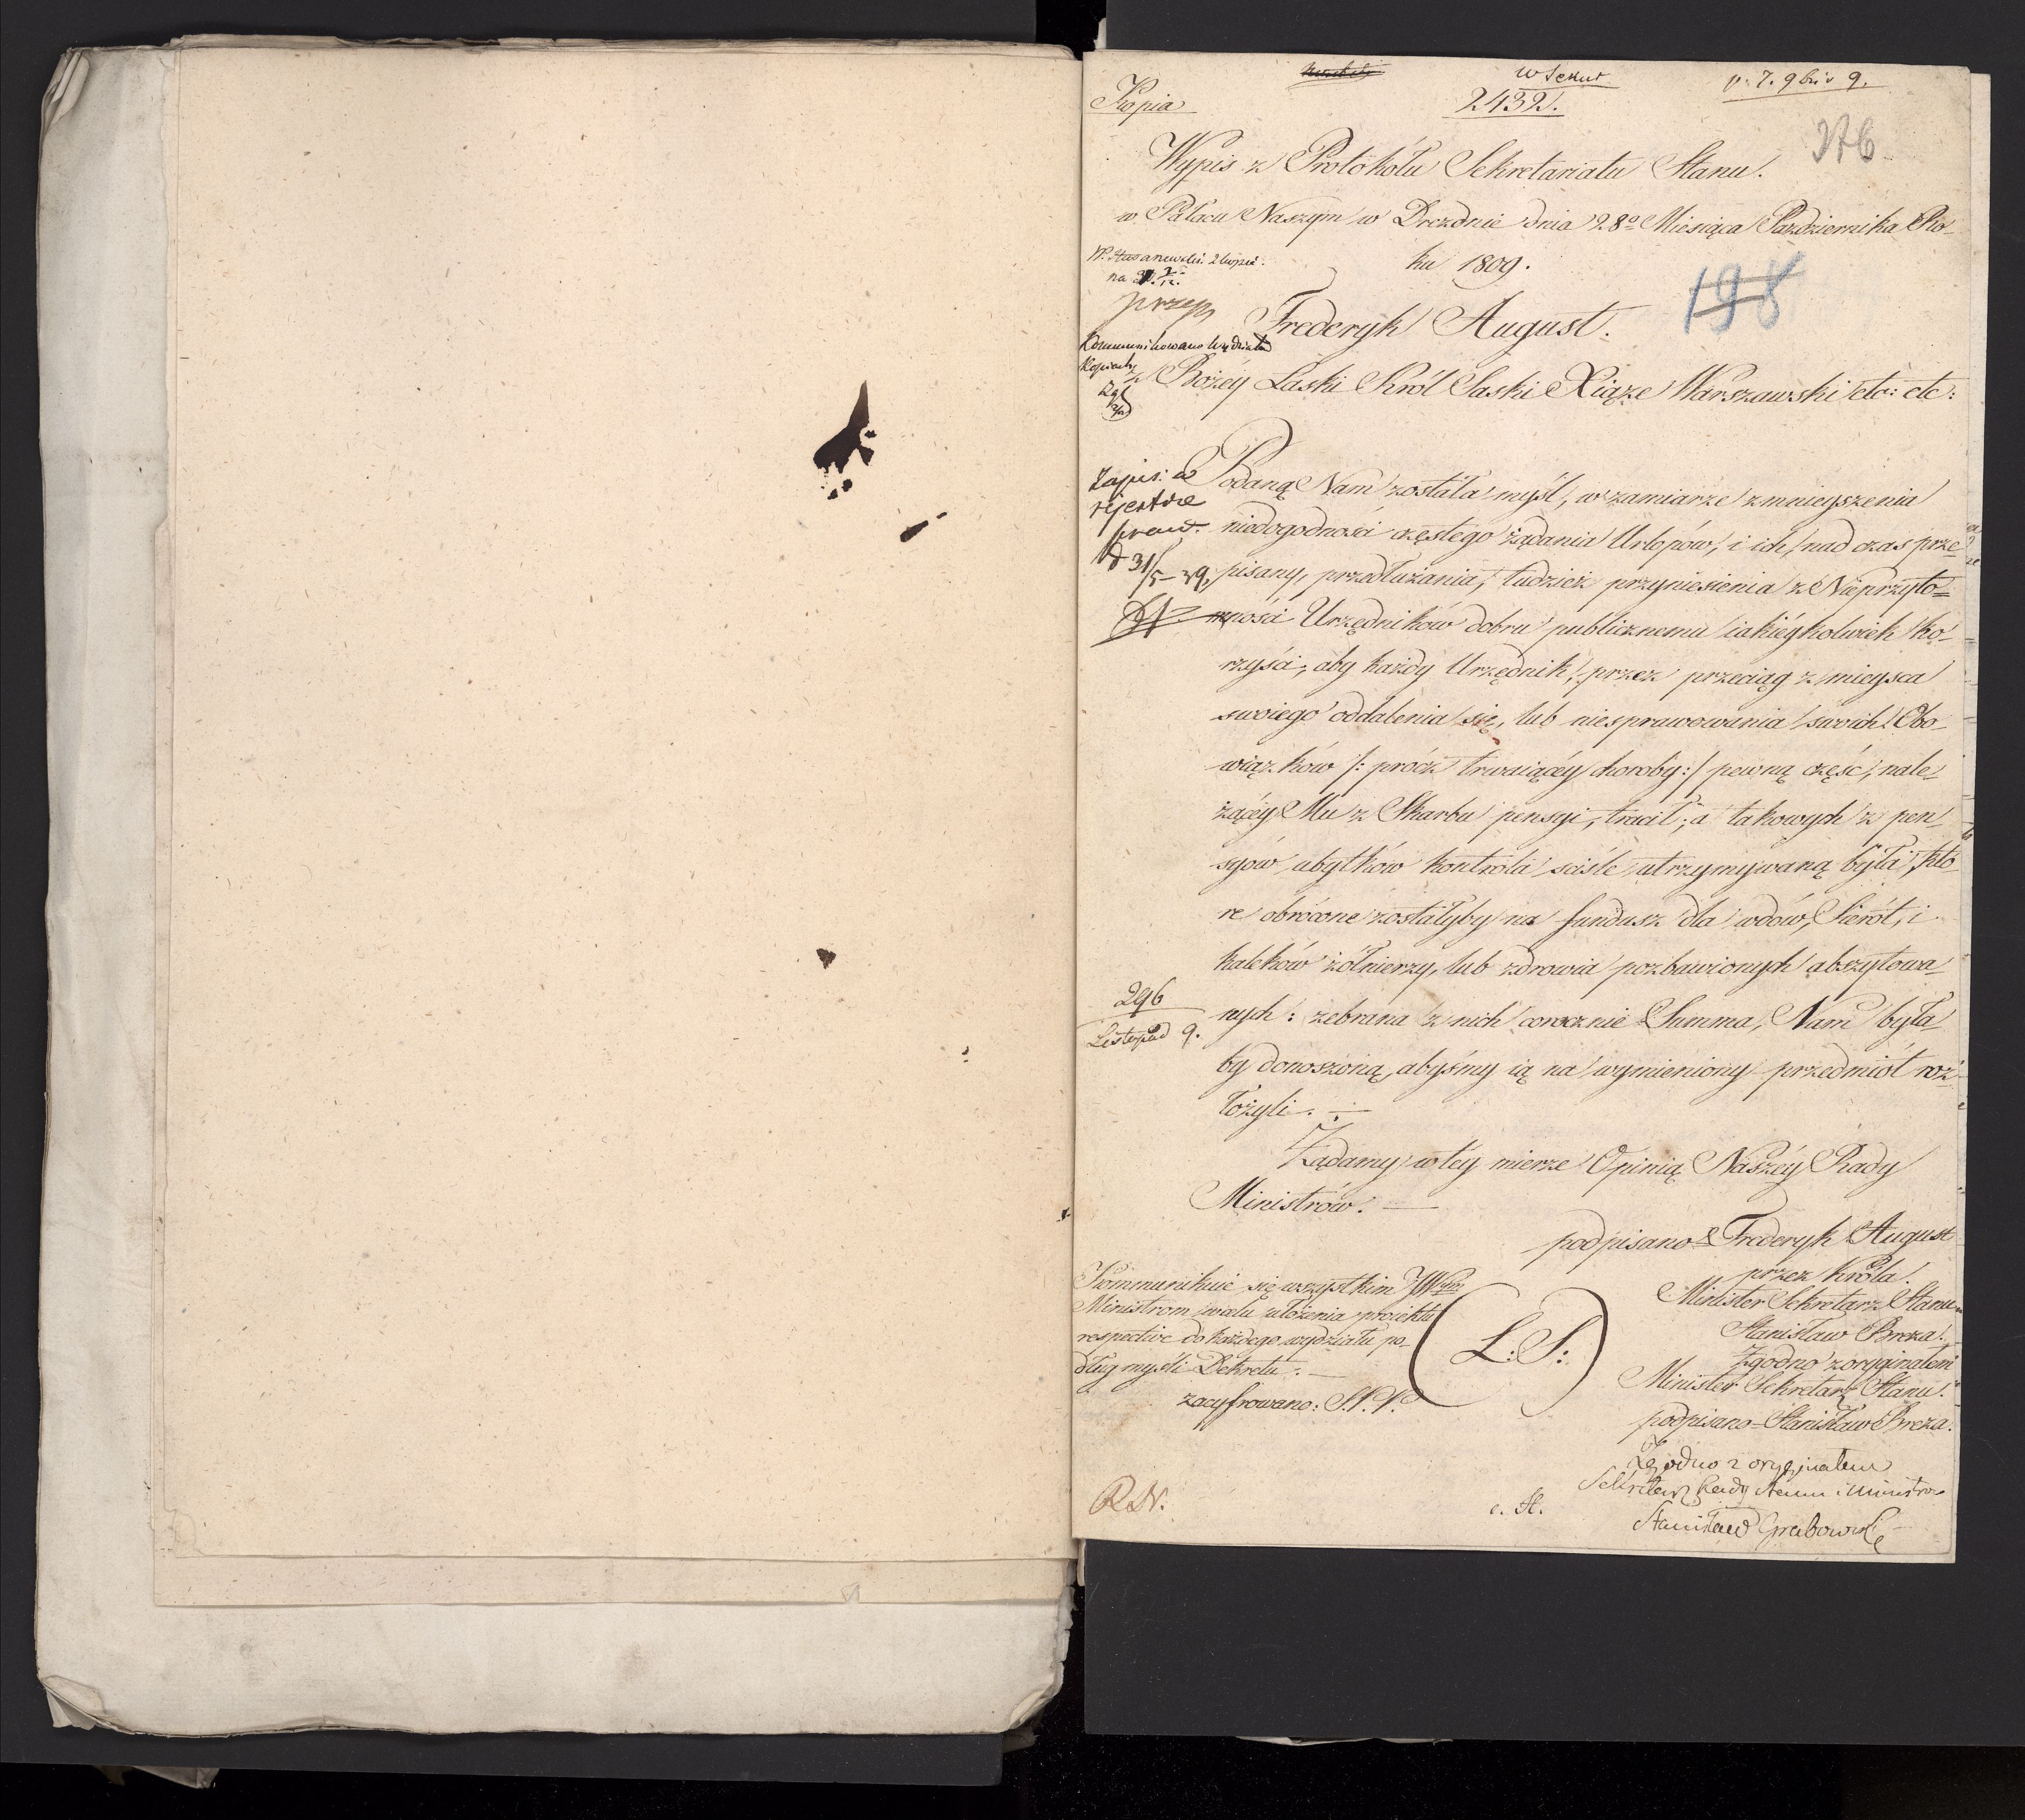 Kopia
w Sekret
2432.
p. 7. 9bris 9.
376
Wypis z Protokółu Sekretariatu Stanu.
w Pałacu Naszym w Dreźdnie dnia 28º Miesiąca Pazdziernika Ro-
ku 1809.
przep
198
Frederyk August.
Kommunikowano Wydziałów
z Bożey Łaski Król Saski Xiąże Warszawski etc: etc:
Zapis: w
rejestrze
praw.
d 31/5 - 39.
Podaną Nam została myśl, w zamiarze zmnieyszenia
niedogodności częstego żądania Urlopów, i ich nad czas prze=
pisany, przedłużania, tudzież przyniesienia z Nieprzyto=
mności Urzędników dobru publicznemu iakieykolwiek ko-
rzyści; aby każdy Urzędnik, przez przeciąg z mieysca
swoiego oddalenia się, lub niesprawowania swoich Obo-
wiązków /: prócz trwaiącéy choroby :/ pewną część, nale-
żącéy Mu z Skarbu pensyi, tracił; a takowych z pen-
syów ubytków kontrola ściśle utrzymywaną była, któ-
re obrócone zostałyby na fundusz dla wdów, Sierót, i
kaleków żółnierzy, lub zdrowia pozbawionych abszytowa-
nych: zebrana z nich corocznie Summa, Nam była-
by donoszoną, abyśmy ią na wymieniony przedmiot roz-
łożyli. ÷
296
Listopad 9.
Żądamy w téy mierze Opinią Naszéy Rady
Ministrów. —
podpisano Frederyk August
przez Króla.
Minister Sekretarz Stanu
Stanisław Breza.
Zgodno z oryginałem
Minister Sekretarz Stanu.
podpisano - Stanisław Breza.
Kommunikuie się wszystkim JW
Ministrom w celu ułożenia proiektu
respective do każdego wydziału po-
dług myśli Dekretu. —
zacyfrowano: S. P. P.
(L: S:)
Zgodno z oryginałem
Sekretarz Rady Stanu i Ministrow
Stanisław Grabowski
R. N.
c. St.